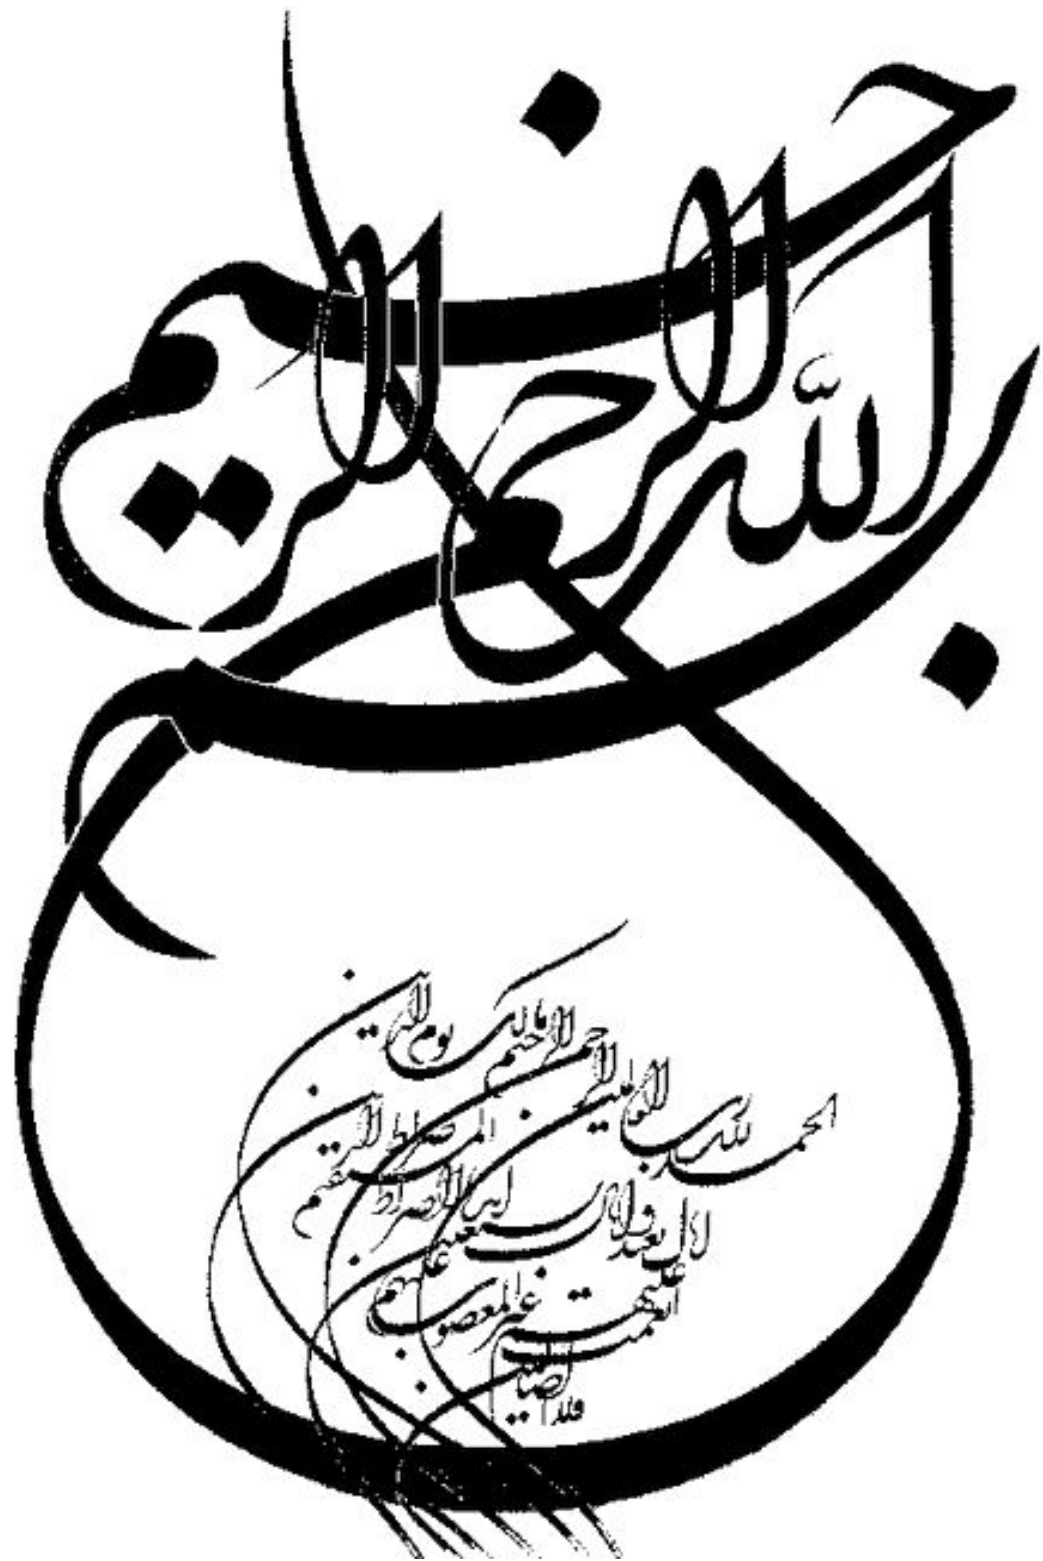 بسم الله الرحمن الرحيم
الحمد لله رب العالمين الرحمن الرحيم مالك يوم الدين
إياك نعبد وإياك نستعين اهدنا الصراط المستقيم صراط
أنعمت عليهم غير المغضوب عليهم
ولا الضالين